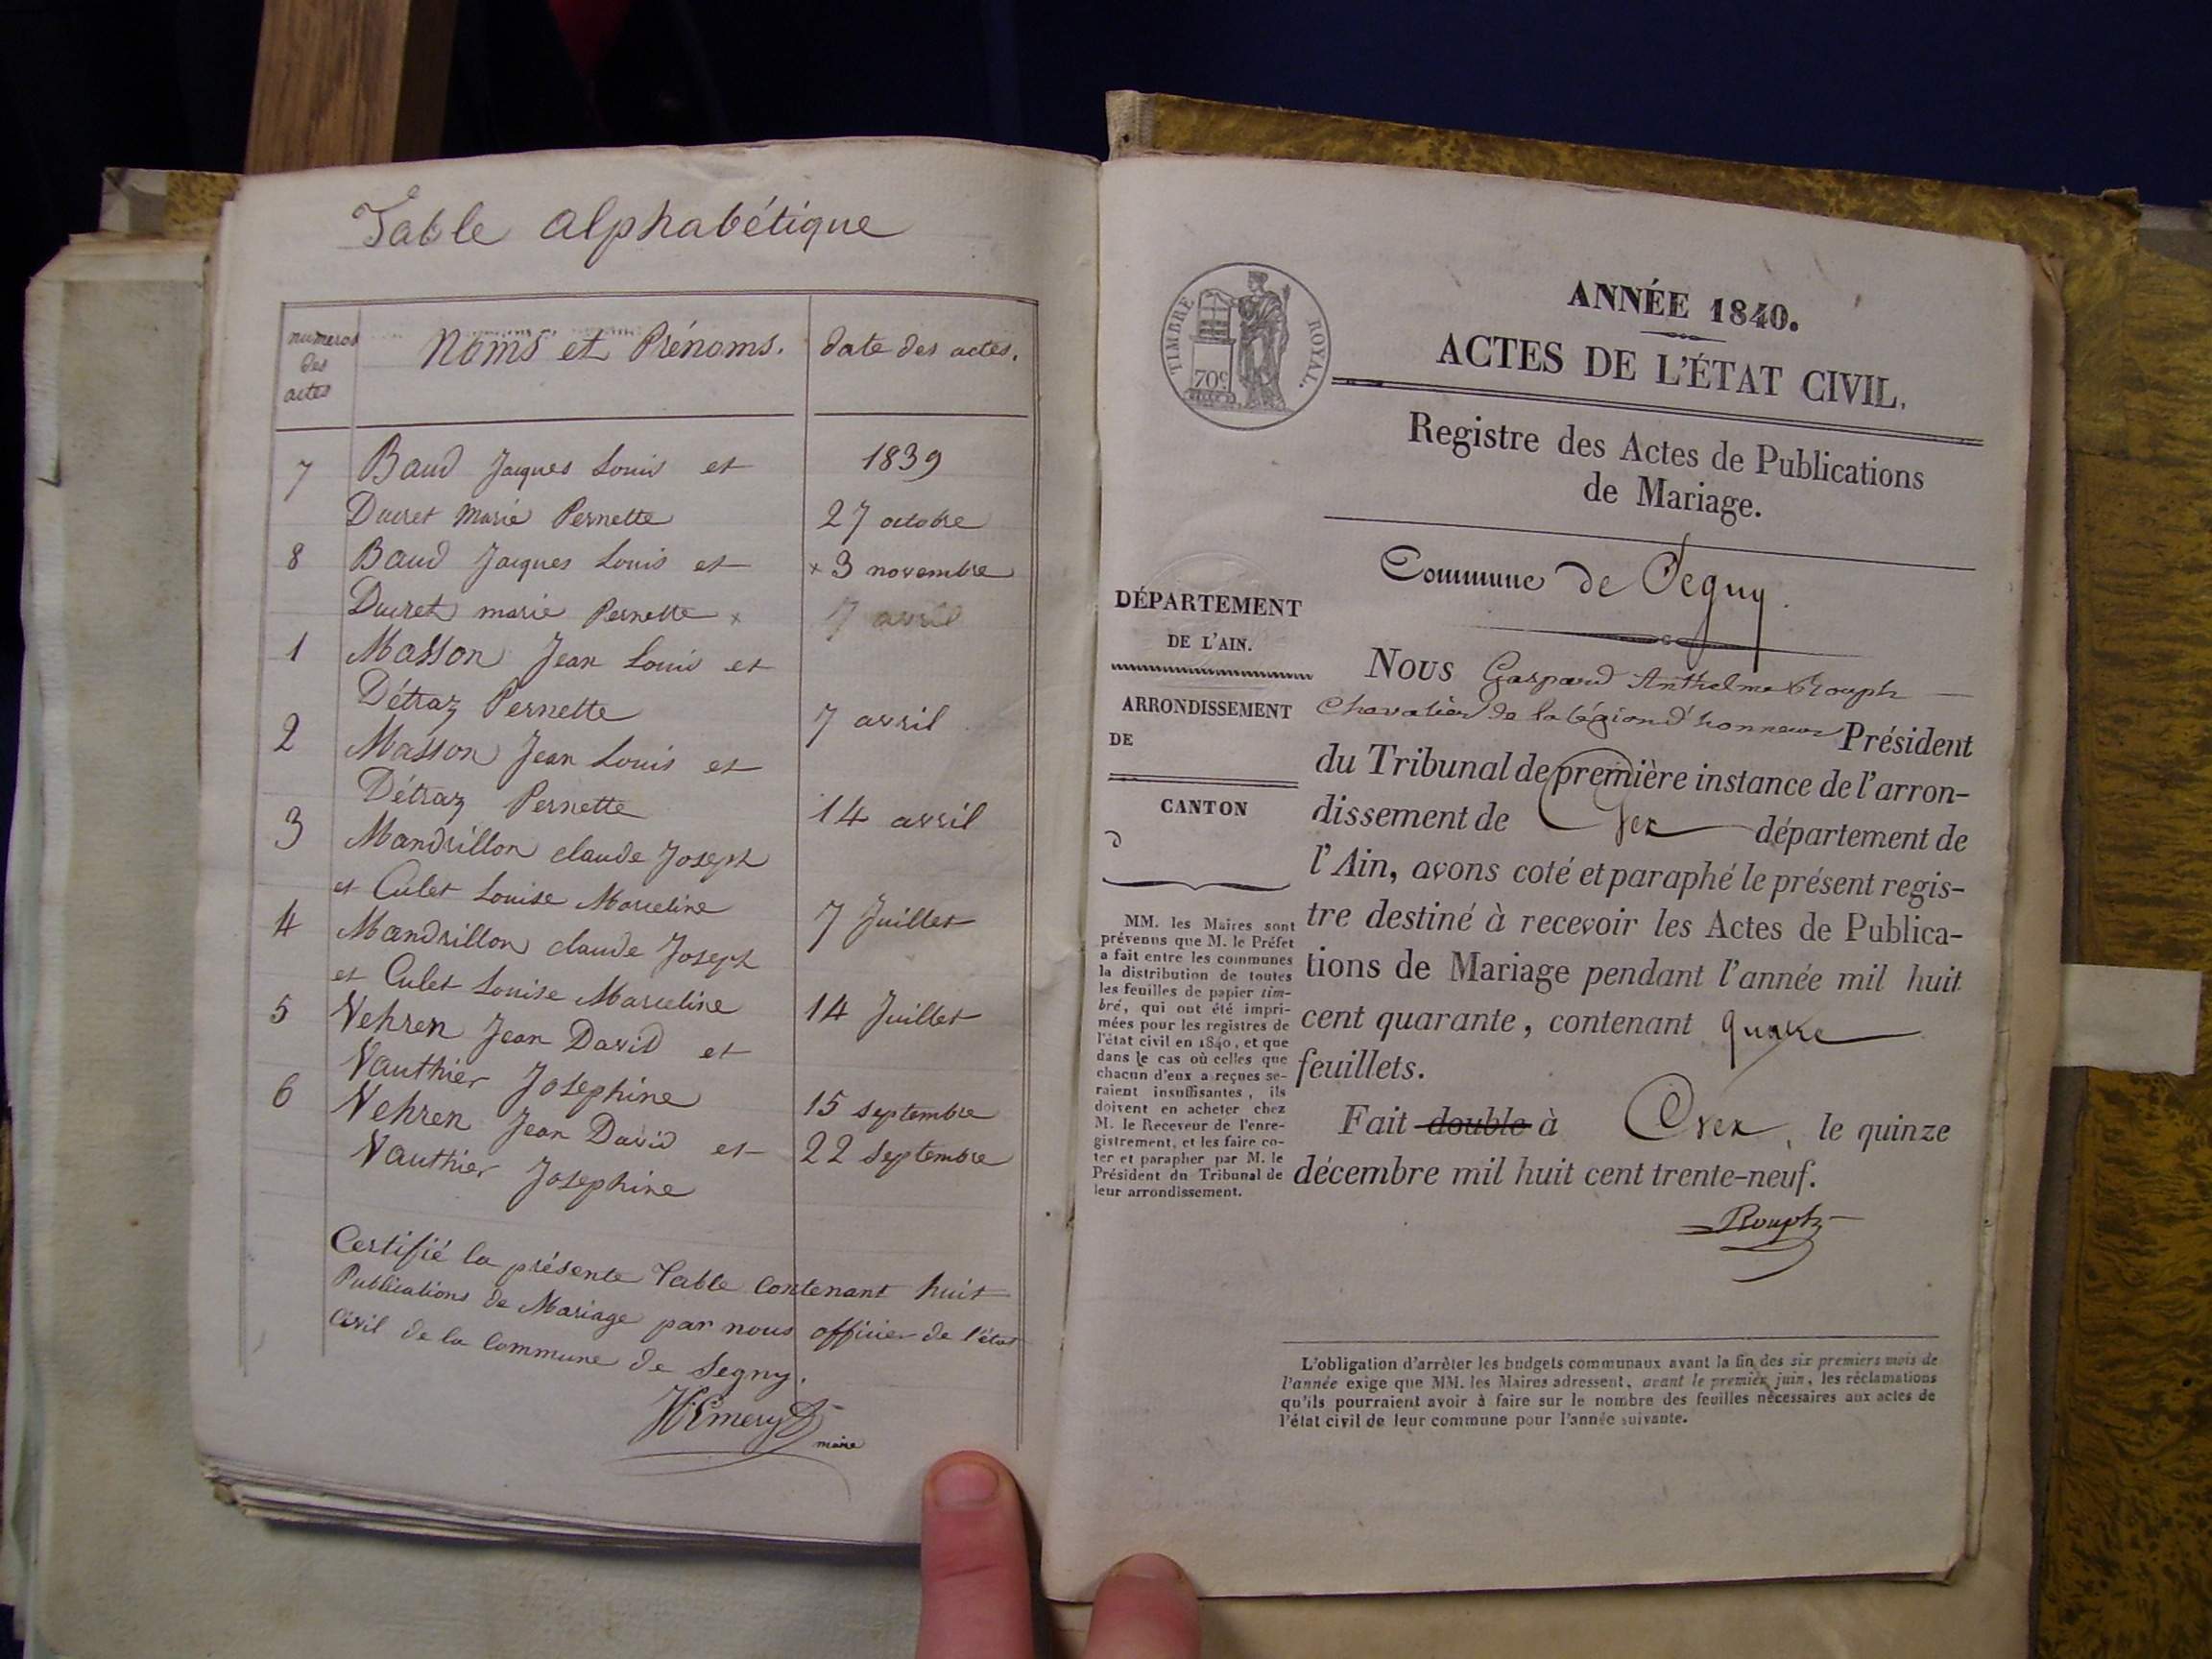 Table alphabétique
numéros des actes
Noms et Prénoms.
date des actes.
7 Baud Jacques Louis et 1839
Ducret Marie Pernette 27 octobre
8 Baud Jacques Louis et × 3 novembre
Ducret marie Pernette × 7 avril
1 Masson Jean Louis et
Détraz Pernette 7 avril
2 Masson Jean Louis et
Détraz Pernette 14 avril
3 Mandrillon claude Joseph
et Culet Louise Marceline 7 Juillet
4 Mandrillon claude Joseph
et Culet Louise Marceline 14 Juillet
5 Vehren Jean David et
Vauthier Josephine 15 septembre
6 Vehren Jean David et 22 septembre
Vauthier Josephine
Certifié la présente Table contenant huit
Publications de Mariage par nous officier de l'état
Civil de la Commune de Segny.
Emery
maire
TIMBRE ROYAL.
70c
ANNÉE 1840.
ACTES DE L'ÉTAT CIVIL.
Registre des Actes de Publications
de Mariage.
Commune de Segny.
DÉPARTEMENT
DE L'AIN.
ARRONDISSEMENT
DE
CANTON
D
MM. les Maires sont
prévenus que M. le Préfet
a fait entre les communes
la distribution de toutes
les feuilles de papier tim-
bré, qui ont été impri-
mées pour les registres de
l'état civil en 1840, et que
dans le cas où celles que
chacun d'eux a reçues se-
raient insuffisantes, ils
doivent en acheter chez
M. le Receveur de l'enre-
gistrement, et les faire co-
ter et parapher par M. le
Président du Tribunal de
leur arrondissement.
Nous Gaspard Anthelme Rouph
Chevalier de la légion d'honneur Président
du Tribunal de première instance de l'arron-
dissement de Gex département de
l'Ain, avons coté et paraphé le présent regis-
tre destiné à recevoir les Actes de Publica-
tions de Mariage pendant l'année mil huit
cent quarante, contenant quatre
feuillets.
Fait double à Gex, le quinze
décembre mil huit cent trente-neuf.
Rouph
L'obligation d'arrêter les budgets communaux avant la fin des six premiers mois de
l'année exige que MM. les Maires adressent, avant le premier juin, les réclamations
qu'ils pourraient avoir à faire sur le nombre des feuilles nécessaires aux actes de
l'état civil de leur commune pour l'année suivante.